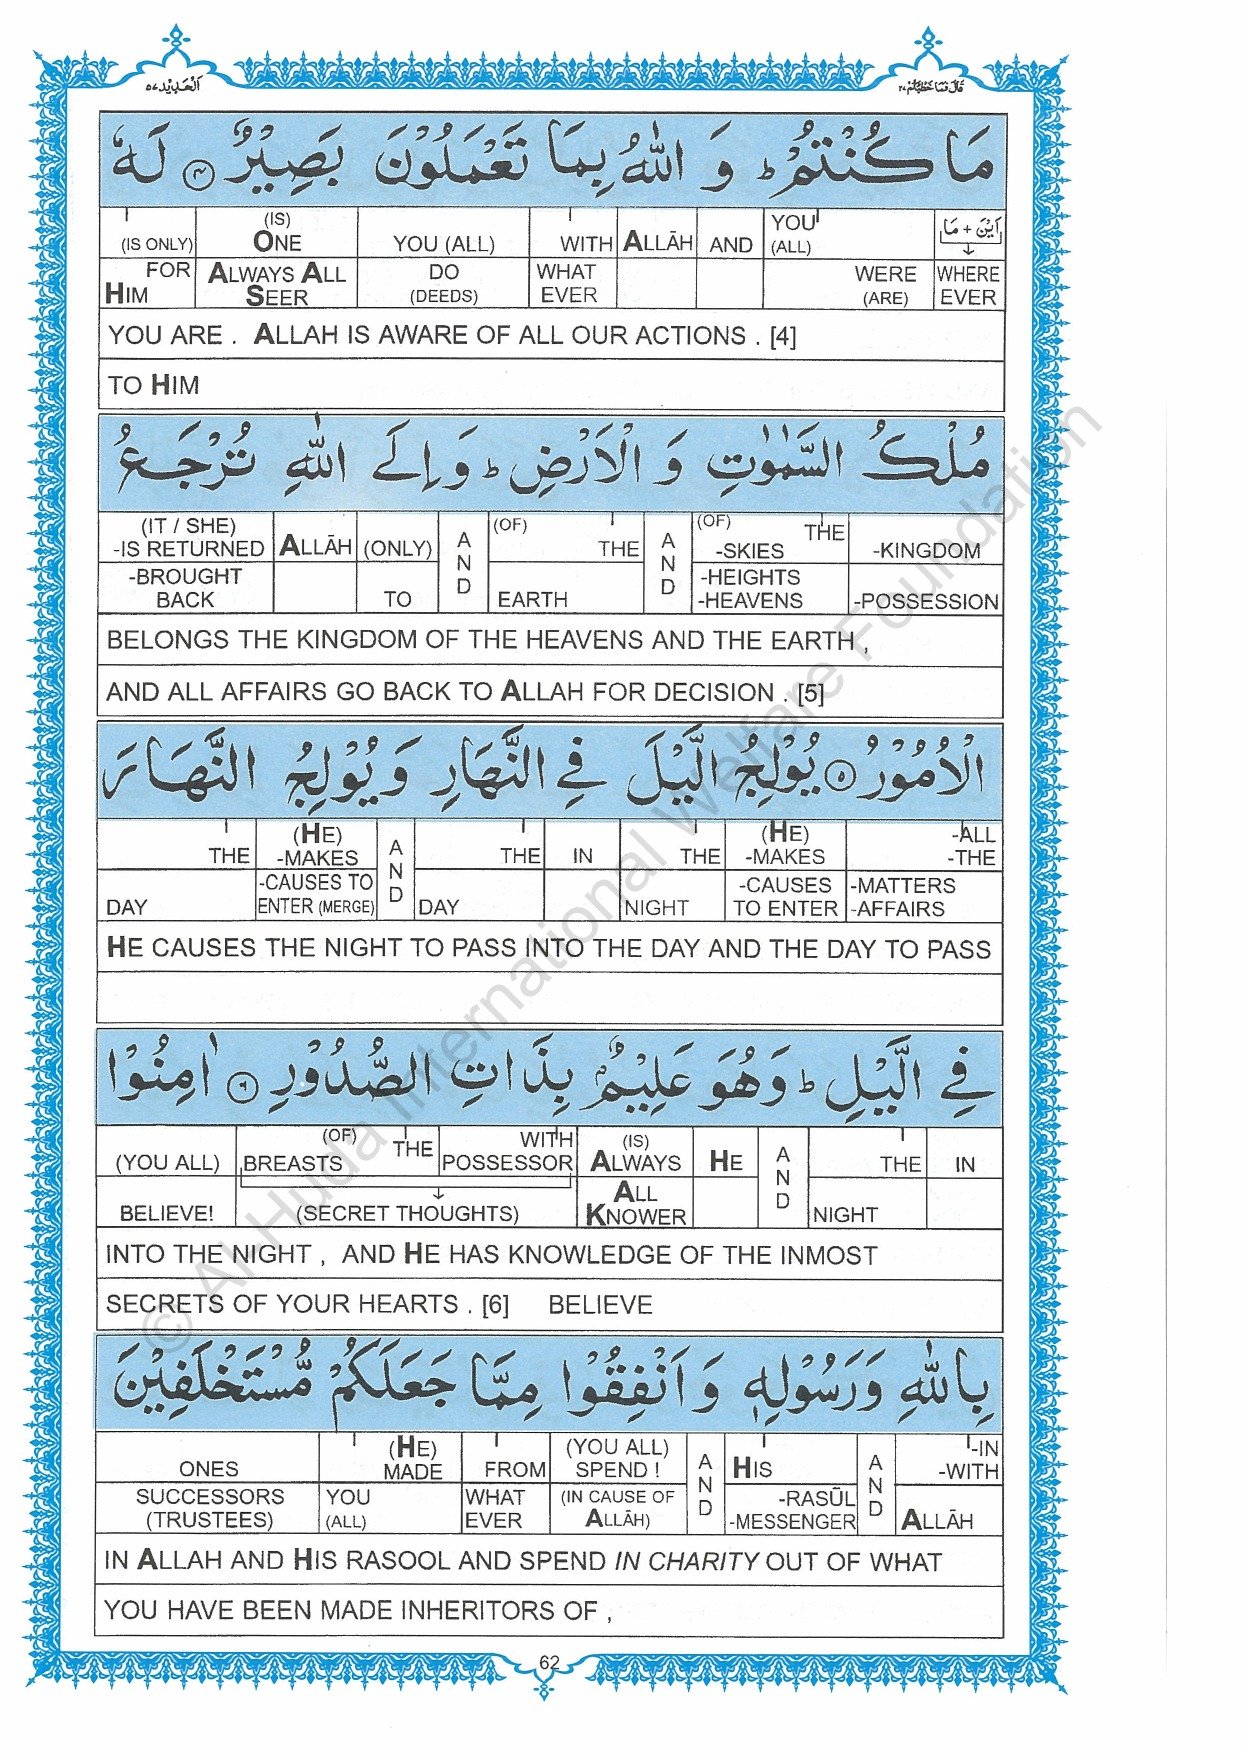 اَلْحَدِيْد ٥٧
قَالَ فَمَا خَطْبُكُمْ ٢٧
مَا كُنْتُمْ ؕ وَ اللّٰهُ بِمَا تَعْمَلُوْنَ بَصِيْرٌ ۴ لَهٗ
(IS ONLY) (IS) ONE YOU (ALL) WITH ALLĀH AND YOU (ALL) اَيْنَ + مَا
FOR HIM ALWAYS ALL SEER DO (DEEDS) WHAT EVER WERE (ARE) WHERE EVER
YOU ARE . ALLAH IS AWARE OF ALL OUR ACTIONS . [4]
TO HIM
مُلْكُ السَّمٰوٰتِ وَ الْاَرْضِ ؕ وَ اِلَى اللّٰهِ تُرْجَعُ
(IT / SHE) -IS RETURNED ALLĀH (ONLY) AND (OF) THE AND (OF) THE -SKIES -KINGDOM
-BROUGHT BACK TO EARTH -HEIGHTS -HEAVENS -POSSESSION
BELONGS THE KINGDOM OF THE HEAVENS AND THE EARTH ,
AND ALL AFFAIRS GO BACK TO ALLAH FOR DECISION . [5]
الْاُمُوْرُ ۵ يُوْلِجُ الَّيْلَ فِي النَّهَارِ وَ يُوْلِجُ النَّهَارَ
THE (HE) -MAKES AND THE IN THE (HE) -MAKES -ALL -THE
DAY -CAUSES TO ENTER (MERGE) DAY NIGHT -CAUSES TO ENTER -MATTERS -AFFAIRS
HE CAUSES THE NIGHT TO PASS INTO THE DAY AND THE DAY TO PASS
فِي الَّيْلِ ؕ وَ هُوَ عَلِيْمٌۢ بِذَاتِ الصُّدُوْرِ ۶ اٰمِنُوْا
(YOU ALL) (OF) THE BREASTS WITH POSSESSOR (IS) ALWAYS HE AND THE IN
BELIEVE! (SECRET THOUGHTS) ALL KNOWER NIGHT
INTO THE NIGHT , AND HE HAS KNOWLEDGE OF THE INMOST
SECRETS OF YOUR HEARTS . [6] BELIEVE
بِاللّٰهِ وَ رَسُوْلِهٖ وَ اَنْفِقُوْا مِمَّا جَعَلَكُمْ مُّسْتَخْلَفِيْنَ
ONES (HE) MADE FROM (YOU ALL) SPEND ! AND HIS AND -IN -WITH
SUCCESSORS (TRUSTEES) YOU (ALL) WHAT EVER (IN CAUSE OF ALLĀH) -RASŪL -MESSENGER ALLĀH
IN ALLAH AND HIS RASOOL AND SPEND IN CHARITY OUT OF WHAT
YOU HAVE BEEN MADE INHERITORS OF ,
62
© Al-Huda International Welfare Foundation